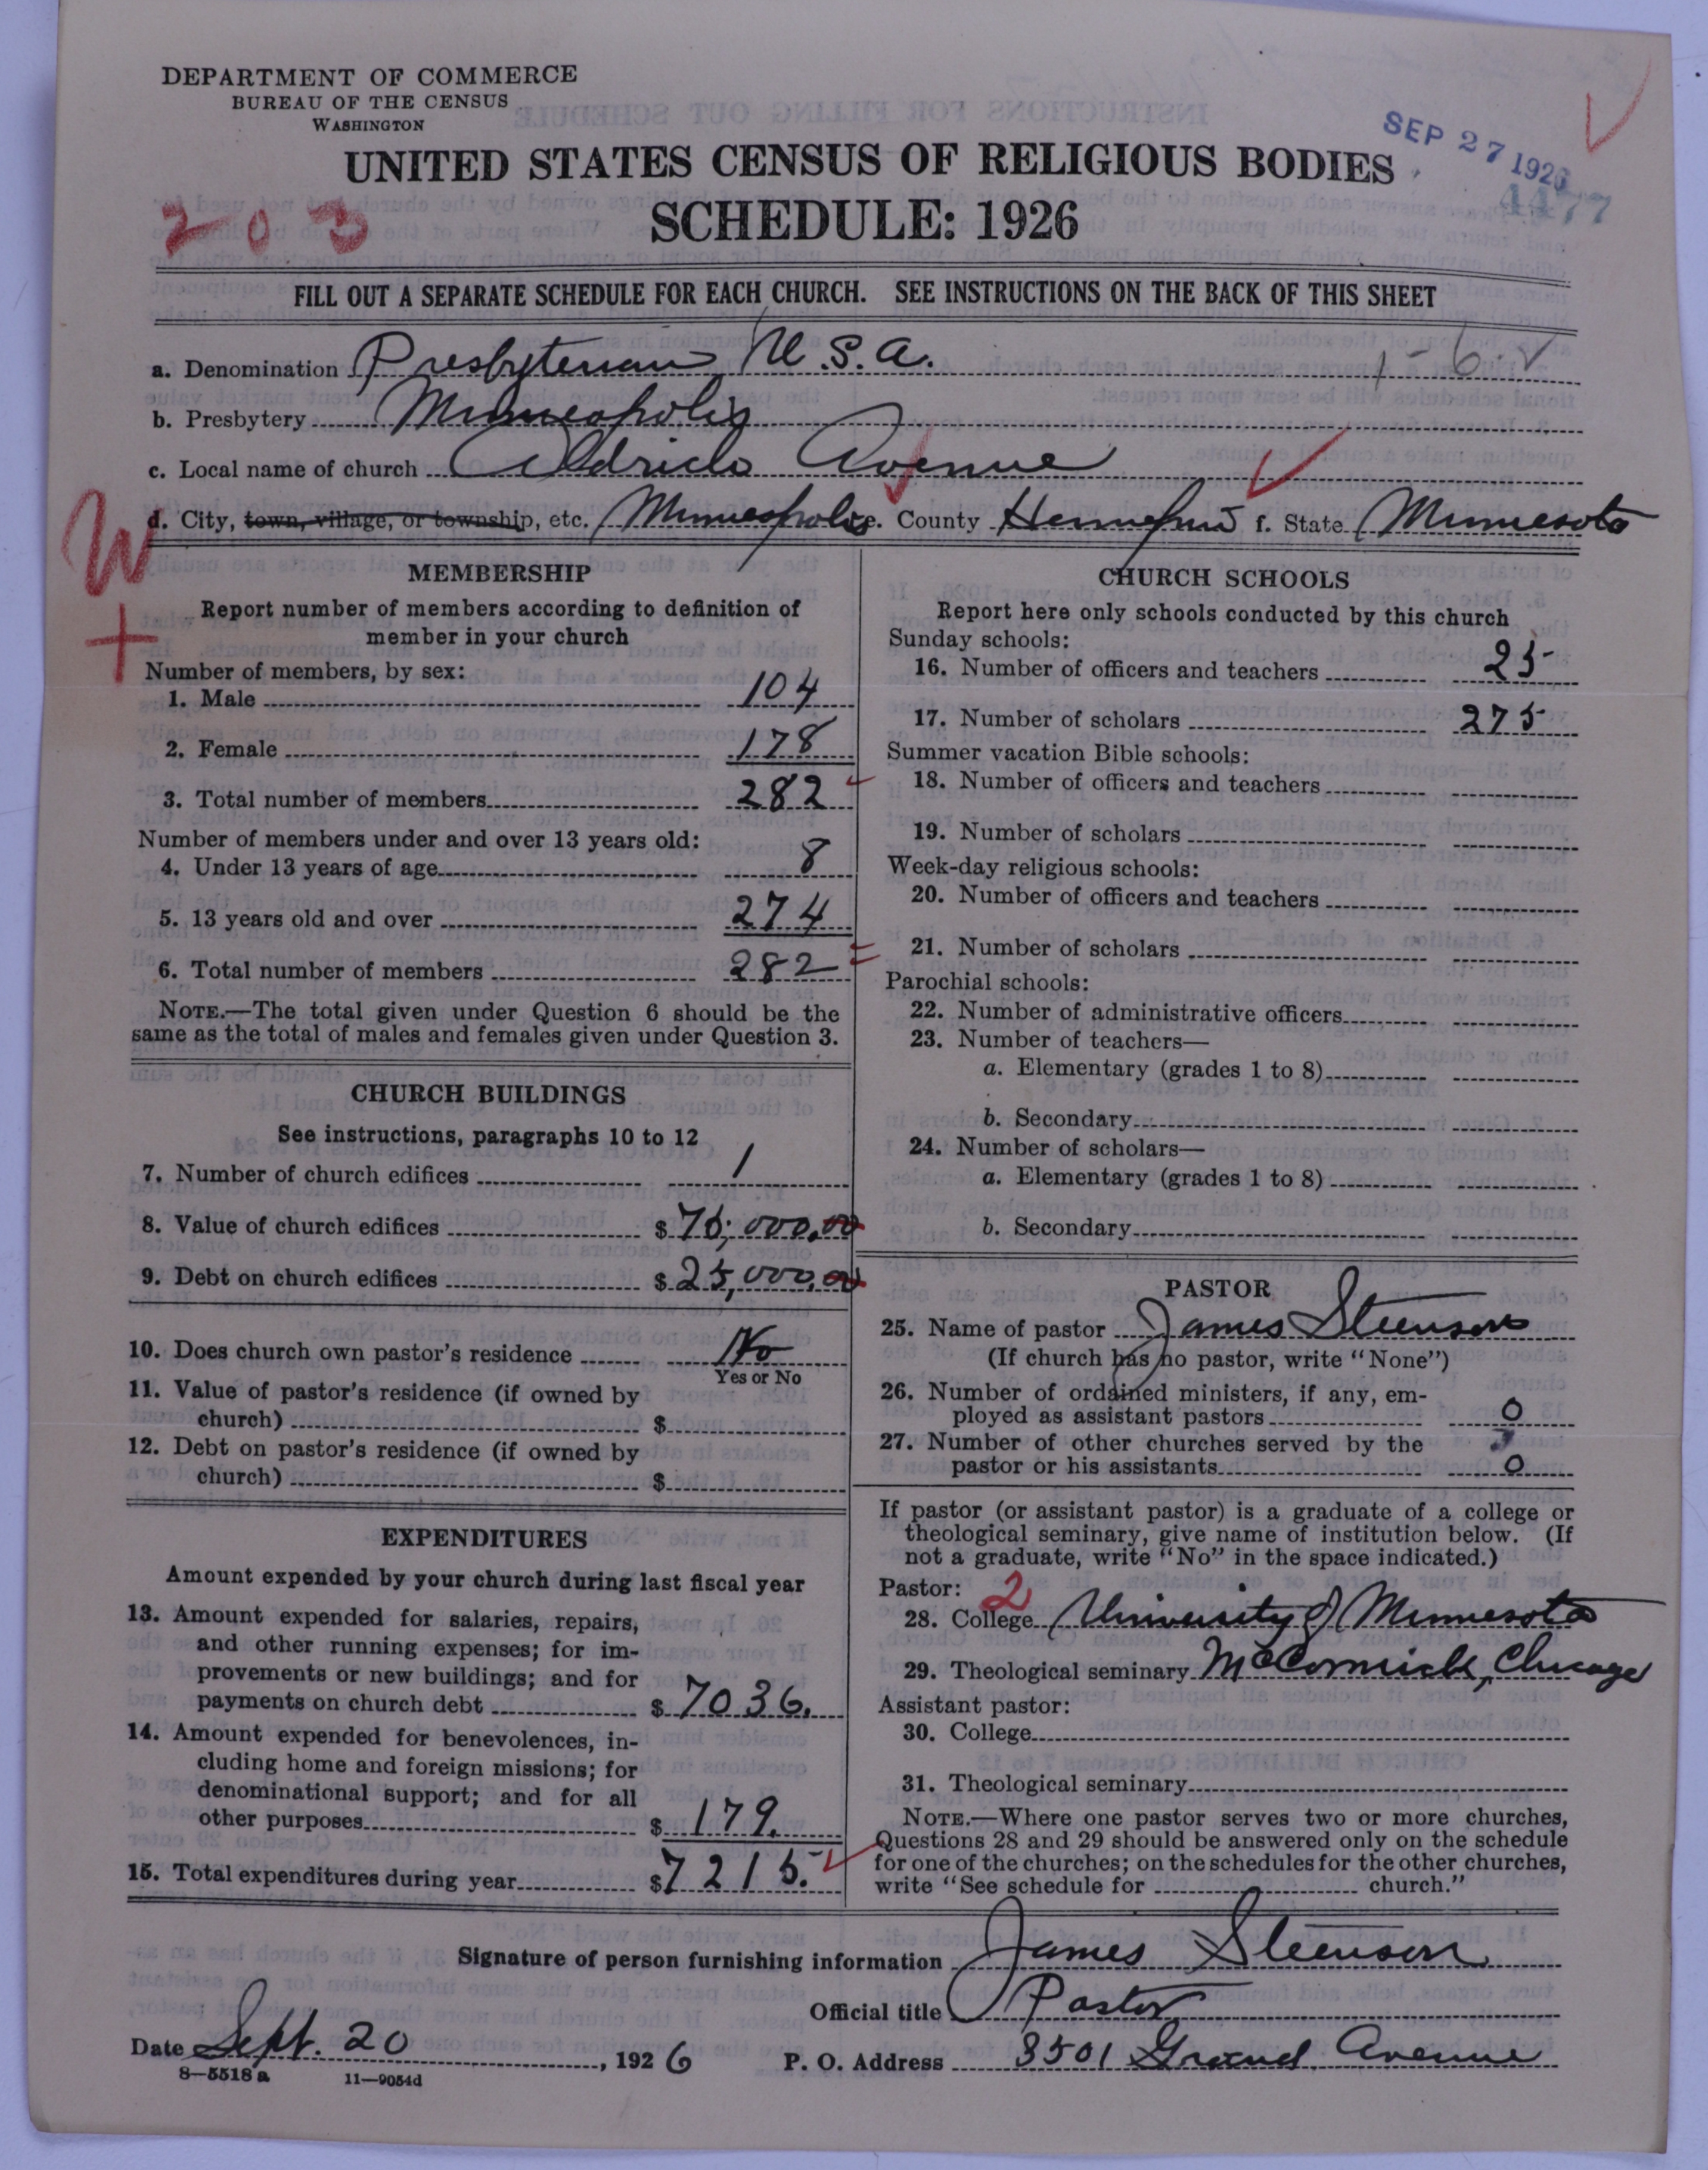 DEPARTMENT OF COMMERCE
BUREAU OF THE CENSUS
WASHINGTON
UNITED STATES CENSUS OF RELIGIOUS BODIES
SEP 27 1926
4477
203
SCHEDULE: 1926
FILL OUT A SEPARATE SCHEDULE FOR EACH CHURCH. SEE INSTRUCTIONS ON THE BACK OF THIS SHEET
a. Denomination Presbyterian U.S.A. 1-6.
b. Presbytery Minneapolis
c. Local name of church Aldrich Avenue
d. City, town, village, or township, etc. Minneapolis e. County Hennepin f. State Minnesota
W
+
MEMBERSHIP
Report number of members according to definition of
member in your church
Number of members, by sex:
1. Male 104
2. Female 178
3. Total number of members 282
Number of members under and over 13 years old:
4. Under 13 years of age 8
5. 13 years old and over 274
6. Total number of members 282
NOTE.—The total given under Question 6 should be the
same as the total of males and females given under Question 3.
CHURCH BUILDINGS
See instructions, paragraphs 10 to 12
7. Number of church edifices 1
8. Value of church edifices $ 75,000.00
9. Debt on church edifices $ 25,000.00
10. Does church own pastor's residence No
Yes or No
11. Value of pastor's residence (if owned by
church) $
12. Debt on pastor's residence (if owned by
church) $
EXPENDITURES
Amount expended by your church during last fiscal year
13. Amount expended for salaries, repairs,
and other running expenses; for im-
provements or new buildings; and for
payments on church debt $ 7036.
14. Amount expended for benevolences, in-
cluding home and foreign missions; for
denominational support; and for all
other purposes $ 179.
15. Total expenditures during year $ 7215.
CHURCH SCHOOLS
Report here only schools conducted by this church
Sunday schools:
16. Number of officers and teachers 25
17. Number of scholars 275
Summer vacation Bible schools:
18. Number of officers and teachers
19. Number of scholars
Week-day religious schools:
20. Number of officers and teachers
21. Number of scholars
Parochial schools:
22. Number of administrative officers
23. Number of teachers—
a. Elementary (grades 1 to 8)
b. Secondary
24. Number of scholars—
a. Elementary (grades 1 to 8)
b. Secondary
PASTOR
25. Name of pastor James Steenson
(If church has no pastor, write "None")
26. Number of ordained ministers, if any, em-
ployed as assistant pastors 0
27. Number of other churches served by the
pastor or his assistants 0
If pastor (or assistant pastor) is a graduate of a college or
theological seminary, give name of institution below. (If
not a graduate, write "No" in the space indicated.)
Pastor: 2
28. College University of Minnesota
29. Theological seminary McCormick, Chicago
Assistant pastor:
30. College
31. Theological seminary
NOTE.—Where one pastor serves two or more churches,
Questions 28 and 29 should be answered only on the schedule
for one of the churches; on the schedules for the other churches,
write "See schedule for church."
Signature of person furnishing information James Steenson
Official title Pastor
Date Sept. 20, 1926 P. O. Address 3501 Grand Avenue
8—5518 a 11—9054d